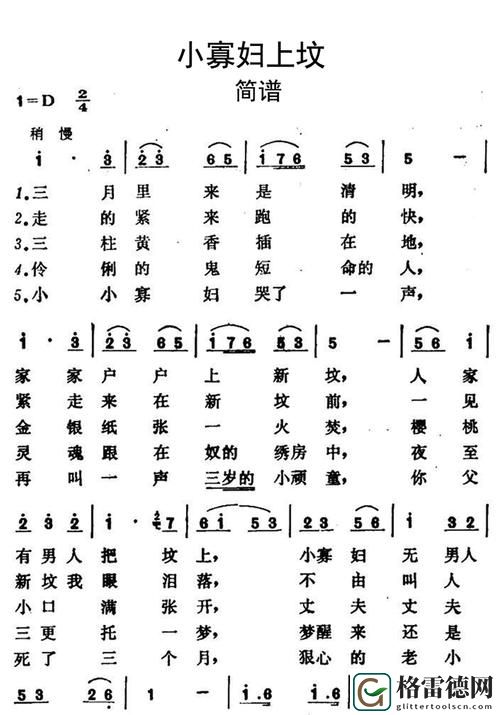 小寡妇上坟
简谱
1=D 2/4
稍 慢
i · 3 | 23 65 | 176 53 | 5 - |
1.三 月 里 来 是 清 明,
2.走 的 紧 来 跑 的 快,
3.三 柱 黄 香 插 在 地,
4.伶 俐 的 鬼 短 命的 人,
5.小 小 寡 妇 哭了 一 声,
i · 3 | 23 65 | 176 53 | 5 - | 56 i |
家 家 户 户 上 新 坟, 人 家
紧 走 来 在 新 坟 前, 一 见
金 银 纸 张 一 火 焚, 樱 桃
灵 魂 跟 在 奴的 绣房 中, 夜 至
再 叫 一 声 三岁的 小顽 童, 你 父
23 23 | i · 27 | 6i 53 | 56 53 | i 32 |
有 男 人 把 坟 上, 小 寡 妇 无 男人
新 坟 我 眼 泪 落, 不 由 叫 人
小 口 满 张 开, 丈 夫 丈夫
三 更 托 一 梦, 梦 醒 来 还 是
死 了 三 个 月, 狠 心 的 老 小
53 53 | 26 · | 1 - | i · 6 |
格雷德网
glittertoolscn.com